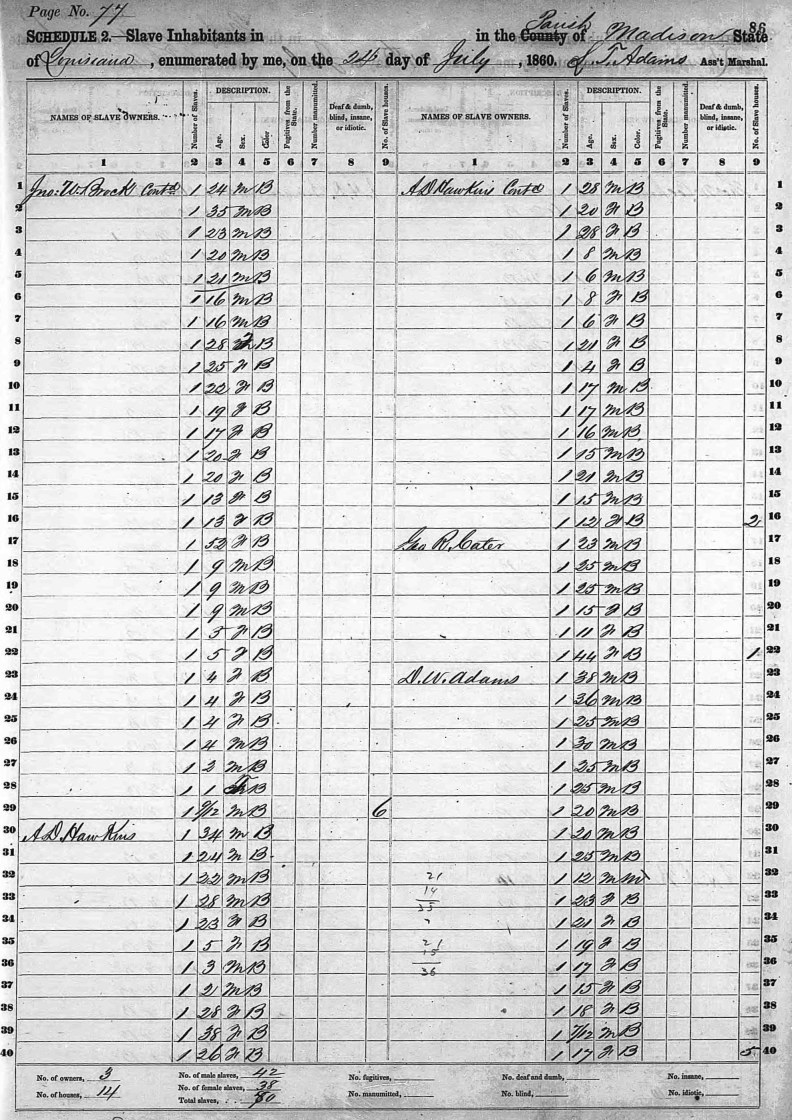 Page No. 77
86
SCHEDULE 2.—Slave Inhabitants in in the County Parish of Madison State
of Louisiana, enumerated by me, on the 24 day of July, 1860. S. T. Adams Ass't Marshal.
NAMES OF SLAVE OWNERS. Number of Slaves. DESCRIPTION. Age. Sex. Color Fugitives from the State. Number manumitted. Deaf & dumb, blind, insane, or idiotic. No. of Slave houses. NAMES OF SLAVE OWNERS. Number of Slaves. DESCRIPTION. Age. Sex. Color. Fugitives from the State. Number manumitted. Deaf & dumb, blind, insane, or idiotic. No. of Slave houses.
1 2 3 4 5 6 7 8 9 1 2 3 4 5 6 7 8 9
1 Jno: W. Brock Contd 1 24 M B A D Hawkins Contd 1 28 M B 1
2 1 35 M B 1 20 F B 2
3 1 23 M B 1 28 F B 3
4 1 20 M B 1 8 M B 4
5 1 21 M B 1 6 M B 5
6 1 16 M B 1 8 F B 6
7 1 16 M B 1 6 F B 7
8 1 28 F B 1 21 F B 8
9 1 25 F B 1 4 F B 9
10 1 22 F B 1 17 M B 10
11 1 19 F B 1 17 M B 11
12 1 17 F B 1 16 M B 12
13 1 20 F B 1 15 M B 13
14 1 20 F B 1 21 M B 14
15 1 13 F B 1 15 M B 15
16 1 13 F B 1 12 F B 2 16
17 1 52 F B Geo R. Cater 1 23 M B 17
18 1 9 M B 1 25 M B 18
19 1 9 M B 1 25 M B 19
20 1 9 M B 1 15 F B 20
21 1 5 F B 1 11 F B 21
22 1 5 F B 1 44 F B 1 22
23 1 4 F B D. W. Adams 1 38 M B 23
24 1 4 F B 1 36 M B 24
25 1 4 F B 1 25 M B 25
26 1 4 M B 1 30 M B 26
27 1 2 M B 1 25 M B 27
28 1 1 B 1 25 M B 28
29 1 9/12 M B 6 1 20 M B 29
30 A D Hawkins 1 34 M B 1 20 M B 30
31 1 24 M B 1 25 M B 31
32 1 22 M B 21 1 12 M M 32
33 1 28 M B 14 35 1 23 F B 33
34 1 23 F B 1 21 F B 34
35 1 5 F B 21 1 19 F B 35
36 1 3 M B 15 36 1 17 F B 36
37 1 2 M B 1 15 F B 37
38 1 28 F B 1 18 F B 38
39 1 38 F B 1 7/12 M B 39
40 1 26 F B 1 17 F B 5 40
No. of owners, 3 No. of male slaves, 42 No. fugitives, No. deaf and dumb, No. insane,
No. of houses, 14 No. of female slaves, 38 No. manumitted, No. blind, No. idiotic,
Total slaves, 80